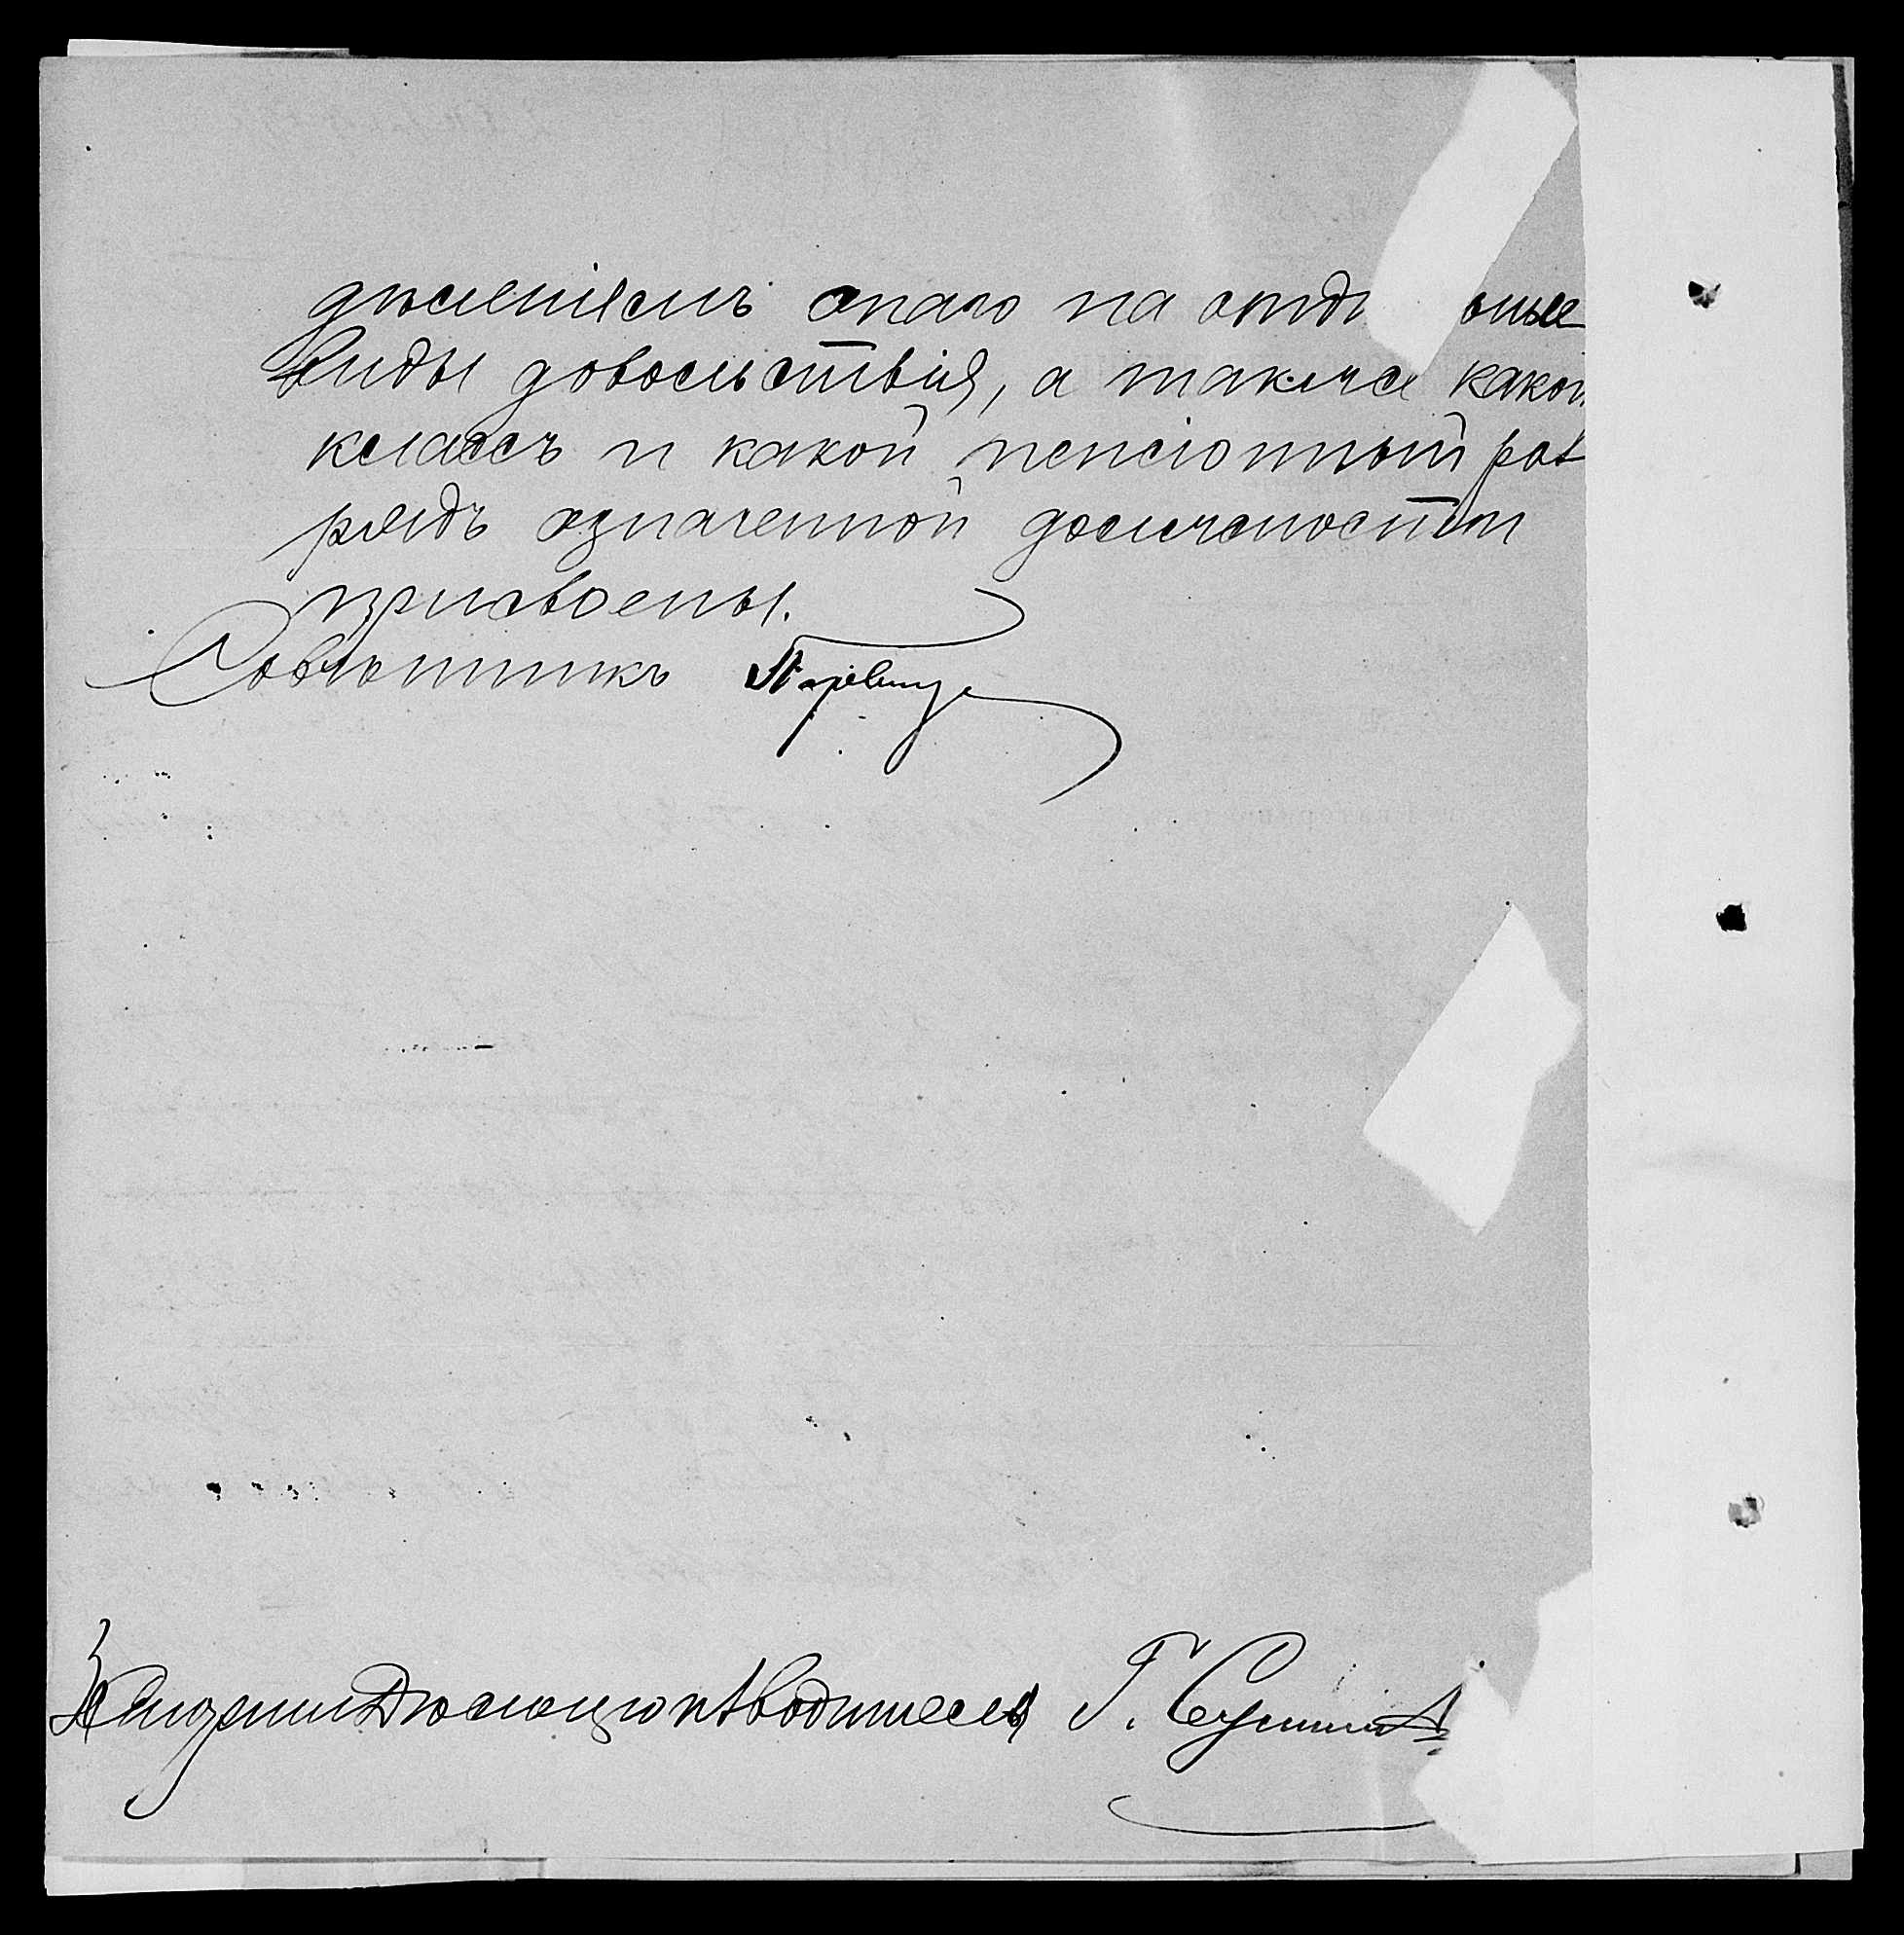 дѣленіемъ онаго на отд ьные
виды довольствія, а также какой
классъ и какой пенсіонный раз
рядъ означенной должности
присвоены.
Совѣтникъ
За Дѣлопроизводителя Г.